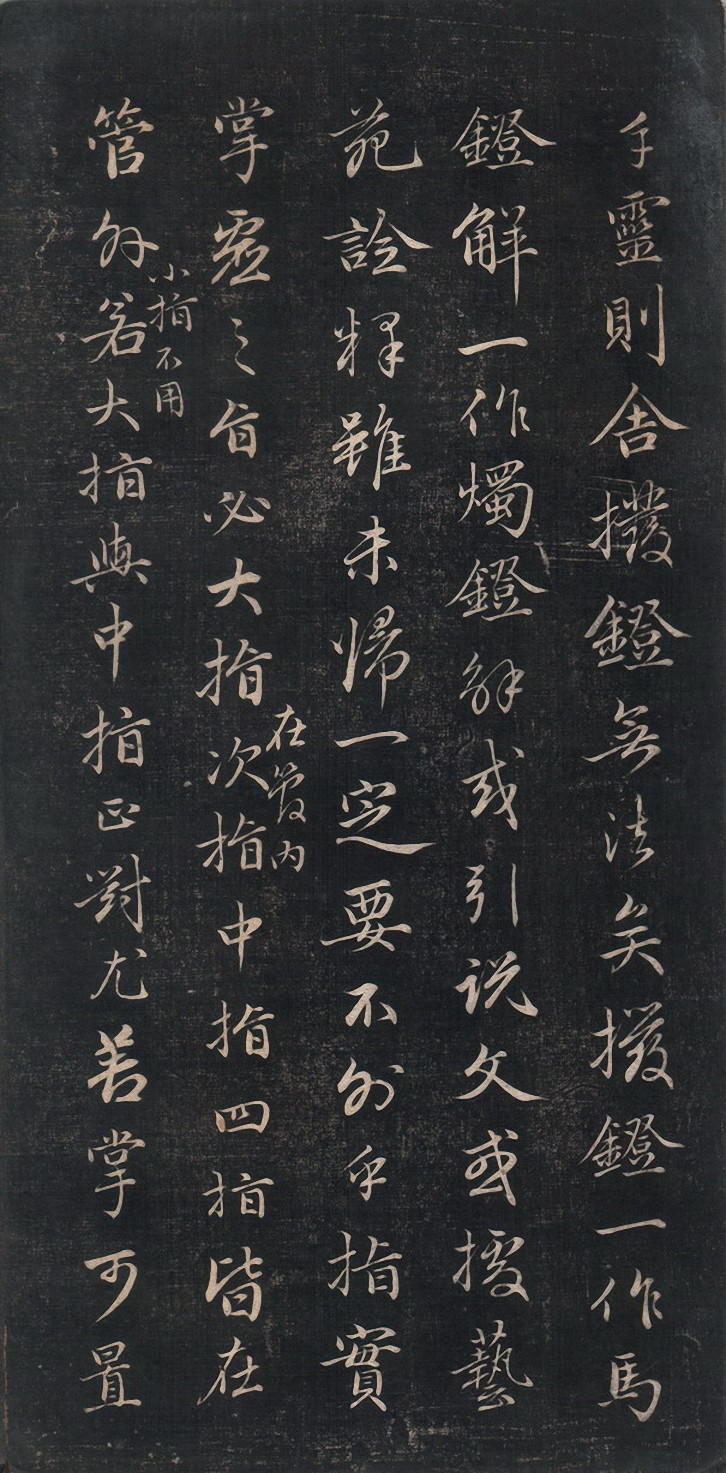 手靈則舍撥鐙無法矣撥鐙一作馬
鐙解一作燭鐙解或引说文或援藝
苑詮釋雖未歸一定要不外乎指實
在管内
掌虛之旨必大指次指中指四指皆在
小指不用
管外若大指與中指正對尤善掌可置